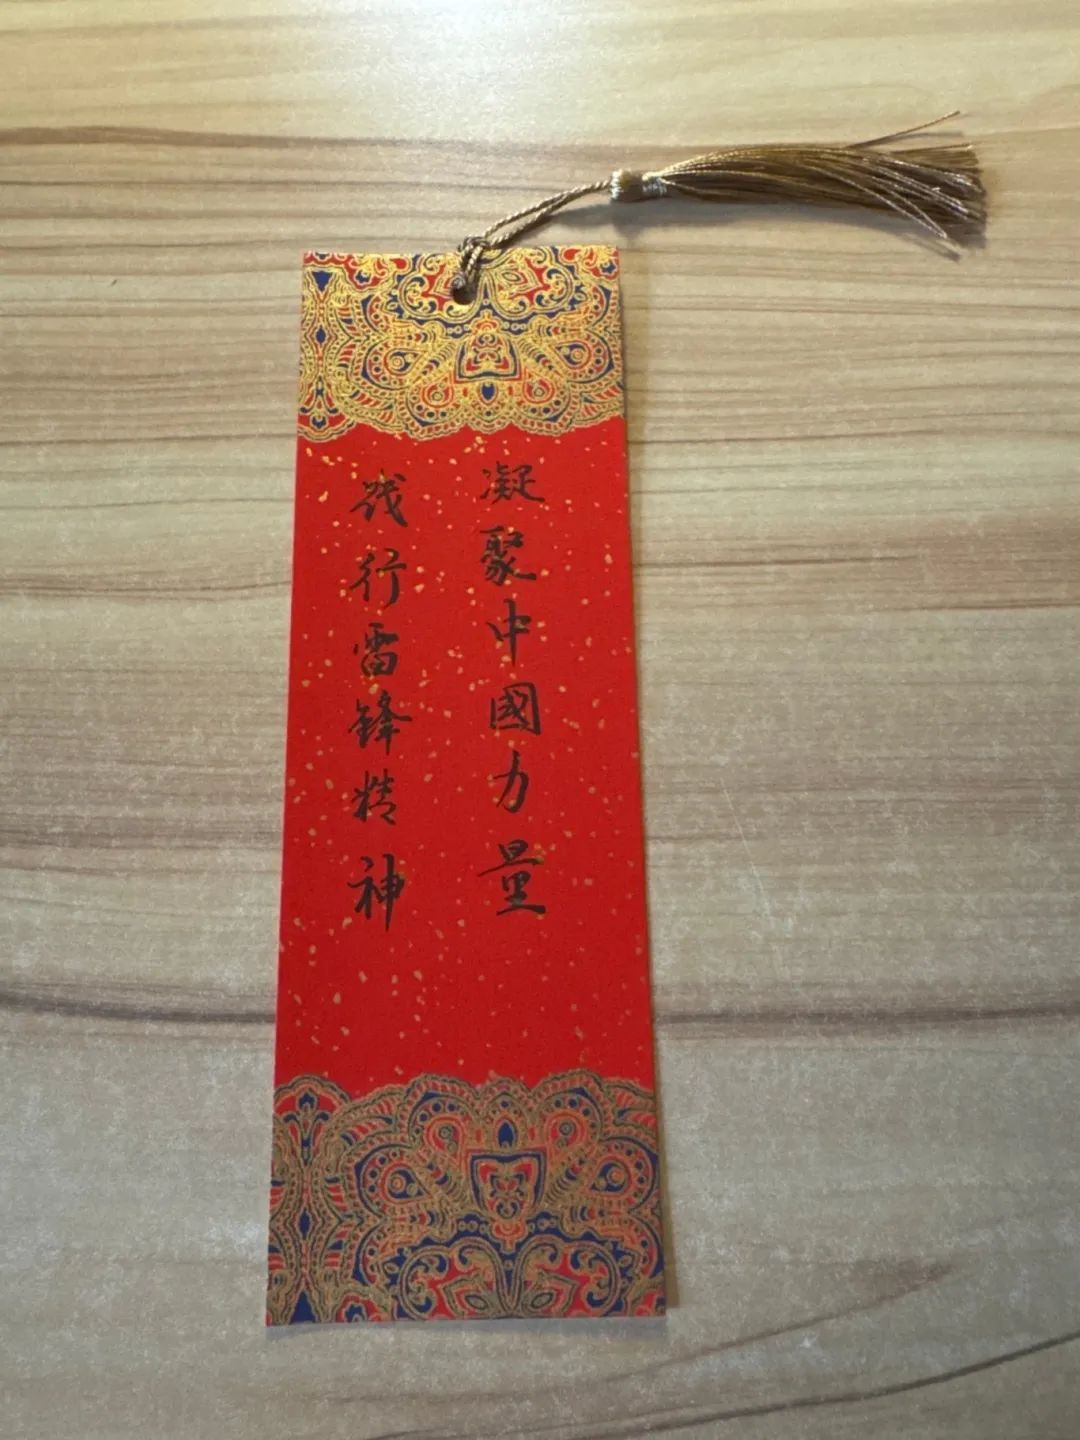 凝聚中國力量
践行雷鋒精神